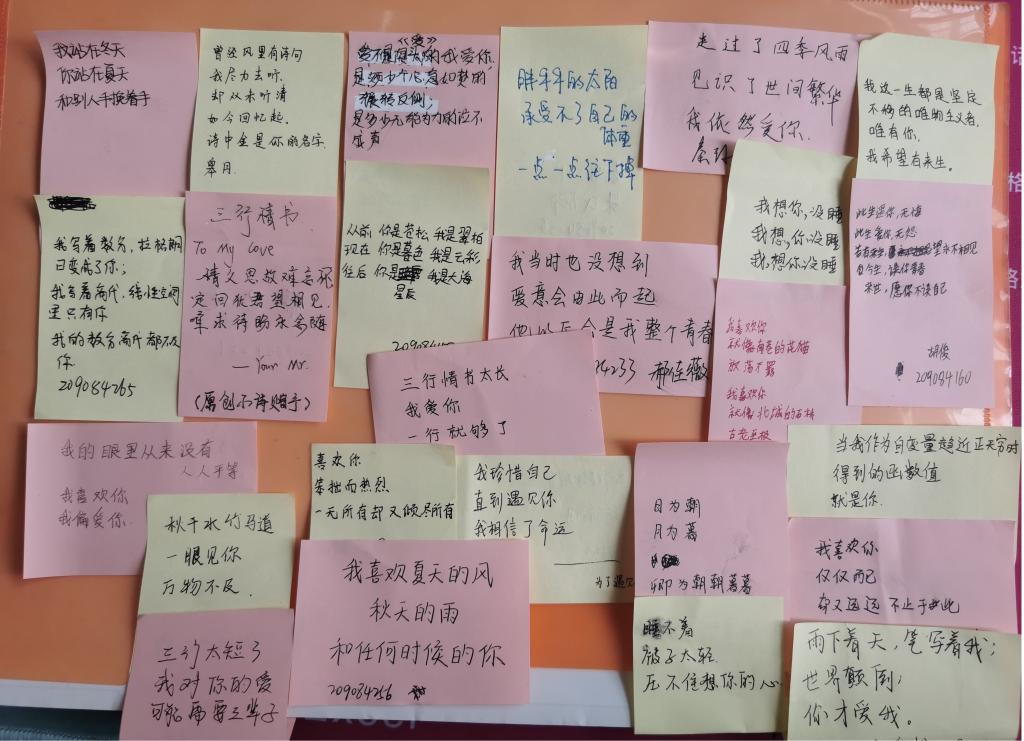 我站在冬天
你站在夏天
和别人手换着手
曾经风里有诗句
我尽力去听
却从未听清
如今回忆起
诗中全是你的名字
皋月.
《爱》
我爱你
是多少个心意如梦的
辗转反侧;
是多少无能为力的
成真
胖乎乎的太阳
承受不了自己的
体重
一点一点往下掉
走过了四季风雨
见识了世间繁华
我依然爱你.
我这一生都是坚定
不移的唯物主义者,
唯有你,
我希望有来生。
我写着教育,拉格朗
日变成了你;
我写着高代,线性空间
里只有你
我的教育高代都不及
你
209084265
三行情书
To My Love
情文思敬难忘怀
定回犹君望相见
章求待盼永务随
— Your Mr.
(原创小诗赠予)
从前 你是苍松 我是翠柏
现在 你是暮色 我是云彩
往后 你是 我是大海
星辰
我当时也没想到
爱意会由此而起
他以后会是我整个青春
4233 郝佳薇
我想你,没睡
我想,你没睡
我,想你没睡
此生遇你,无悔
此生爱你,无怨
若有来生, 望永不相见
今生,误你青春
来世,愿你不误自己
胡俊
209084160
三行情书太长
我爱你
一行就够了
我喜欢你
就像南巷的花猫
放荡不羁
我喜欢你
就像北城的
古老
我的眼里从来没有
人人平等
我喜欢你
我偏爱你.
喜欢你
笨拙而热烈
一无所有却又倾尽所有
我珍惜自己
直到遇见你
我相信了命运
为了遇见
日为朝
月为暮
卿为朝朝暮暮
当我作为自变量趋近正无穷时
得到的函数值
就是你.
秋千水竹马道
一眼见你
万物不及.
我喜欢夏天的风
秋天的雨
和任何时候的你
209084256
我喜欢你
仅仅而已
却又远远不止于此
三行太短了
我对你的爱
可能需要三辈子
睡不着
被子太轻
压不住想你的心.
雨下着天,笔写着我;
世界颠倒;
你才爱我。